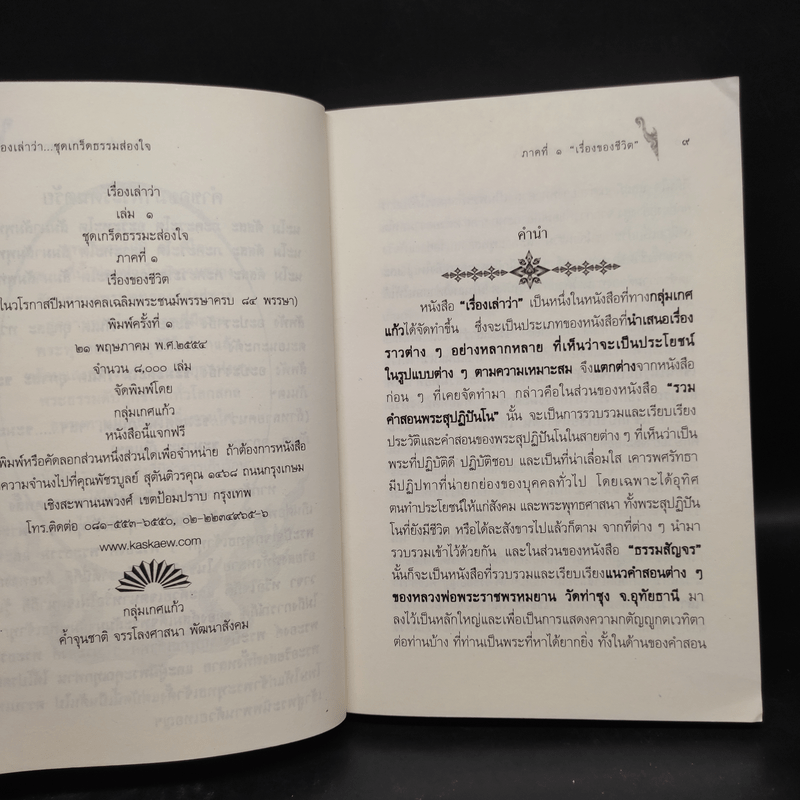 องเล่าว่า...ชุดเกร็ดธรรมส่องใจ
เรื่องเล่าว่า
เล่ม ๑
ชุดเกร็ดธรรมะส่องใจ
ภาคที่ ๑
เรื่องของชีวิต
ในวโรกาสปีมหามงคลเฉลิมพระชนม์พรรษาครบ ๘๔ พรรษา)
พิมพ์ครั้งที่ ๑
๒๑ พฤษภาคม พ.ศ.๒๕๕๔
จำนวน ๘,๐๐๐ เล่ม
จัดพิมพ์โดย
กลุ่มเกศแก้ว
หนังสือนี้แจกฟรี
พิมพ์หรือคัดลอกส่วนหนึ่งส่วนใดเพื่อจำหน่าย ถ้าต้องการหนังสือ
ความจำนงไปที่คุณพัชรบูลย์ สุตันติวรคุณ ๑๔๖๘ ถนนกรุงเกษม
เชิงสะพานนพวงศ์ เขตป้อมปราบ กรุงเทพ
โทร.ติดต่อ ๐๘๑-๕๕๓-๖๕๕๐, ๐๒-๒๒๓๔๙๖๕-๖
www.kaskaew.com
กลุ่มเกศแก้ว
ค้ำจุนชาติ จรรโลงศาสนา พัฒนาสังคม
ภาคที่ ๑ "เรื่องของชีวิต" ๙
คำนำ
หนังสือ "เรื่องเล่าว่า" เป็นหนึ่งในหนังสือที่ทางกลุ่มเกศ
แก้วได้จัดทำขึ้น ซึ่งจะเป็นประเภทของหนังสือที่นำเสนอเรื่อง
ราวต่าง ๆ อย่างหลากหลาย ที่เห็นว่าจะเป็นประโยชน์
ในรูปแบบต่าง ๆ ตามความเหมาะสม จึงแตกต่างจากหนังสือ
ก่อน ๆ ที่เคยจัดทำมา กล่าวคือในส่วนของหนังสือ "รวม
คำสอนพระสุปฏิปันโน" นั้น จะเป็นการรวบรวมและเรียบเรียง
ประวัติและคำสอนของพระสุปฏิปันโนในสายต่าง ๆ ที่เห็นว่าเป็น
พระที่ปฏิบัติดี ปฏิบัติชอบ และเป็นที่น่าเลื่อมใส เคารพศรัทธา
มีปฏิปทาที่น่ายกย่องของบุคคลทั่วไป โดยเฉพาะได้อุทิศ
ตนทำประโยชน์ให้แก่สังคม และพระพุทธศาสนา ทั้งพระสุปฏิปัน
โนที่ยังมีชีวิต หรือได้ละสังขารไปแล้วก็ตาม จากที่ต่าง ๆ นำมา
รวบรวมเข้าไว้ด้วยกัน และในส่วนของหนังสือ "ธรรมสัญจร"
นั้นก็จะเป็นหนังสือที่รวบรวมและเรียบเรียงแนวคำสอนต่าง ๆ
ของหลวงพ่อพระราชพรหมยาน วัดท่าซุง จ.อุทัยธานี มา
ลงไว้เป็นหลักใหญ่และเพื่อเป็นการแสดงความกตัญญูกตเวทิตา
ต่อท่านบ้าง ที่ท่านเป็นพระที่หาได้ยากยิ่ง ทั้งในด้านของคำสอน